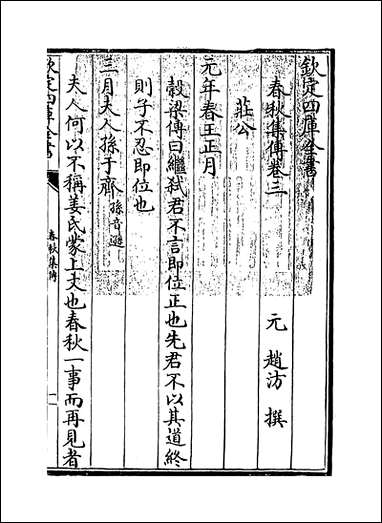 欽定四庫全書
春秋集傳卷三
元 趙汸 撰
莊公
元年春王正月
穀梁傳曰繼弑君不言即位正也先君不以其道終
則子不忍即位也
三月夫人孫于齊孫音遜
夫人何以不稱姜氏蒙上文也春秋一事而再見者
欽定四庫全書
春秋集傳
一